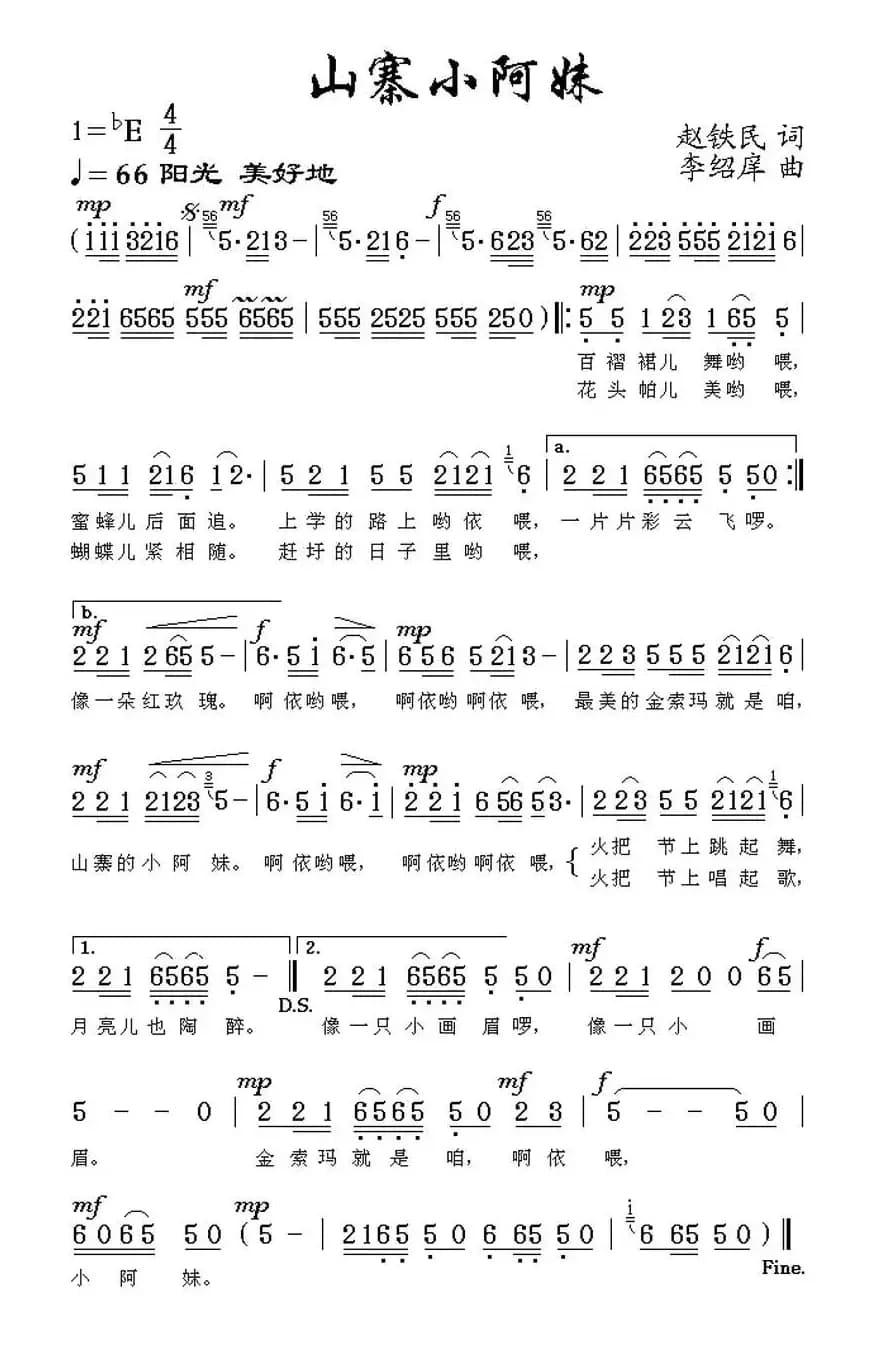 山寨小阿妹
1=♭E 4/4
赵铁民 词
♩=66 阳光 美好地
李绍庠 曲
mp 𝄋 mf f
(111 3216 | 56 5·213– | 56 5·216– | 56 5·623 56 5·62 | 223 555 21216 |
mf mp
221 6565 555 6565 | 555 2525 555 250 ) ‖: 5 5 1 23 1 65 5 |
百褶裙儿 舞哟 喂,
花头帕儿 美哟 喂,
a.
511 216 12· | 5 2 1 5 5 2121 1 6 | 2 2 1 6565 5 50 :‖
蜜蜂儿后面追。 上学的路上哟依 喂, 一片片彩云 飞啰。
蝴蝶儿紧相随。 赶圩的日子里哟 喂,
b.
mf f mp
2 2 1 2 65 5– | 6·51 6·5 | 656 5 213– | 2 2 3 5 5 5 21216 |
像一朵红玫 瑰。 啊依哟喂, 啊依哟啊依喂, 最美的金索玛就是咱,
mf f mp
2 2 1 2123 3 5– | 6·51 6·1 | 2 2 1 6 56 53· | 2 2 3 5 5 2121 1 6 |
山寨的小阿 妹。 啊依哟喂, 啊依哟啊依喂, { 火把 节上跳起舞,
火把 节上唱起歌,
1. 2. mf f
2 2 1 6565 5 – ‖ 2 2 1 6565 5 50 | 2 2 1 2 0 0 65 |
D.S.
月亮儿也陶 醉。 像一只小画眉啰, 像一只小 画
mp mf f
5 – – 0 | 2 2 1 6565 50 2 3 | 5 – – 50 |
眉。 金索玛就是咱, 啊依 喂,
mf mp
6065 50 ( 5 – | 2165 50 6 65 50 | i 6 65 50 ) ‖
小阿 妹。
Fine.